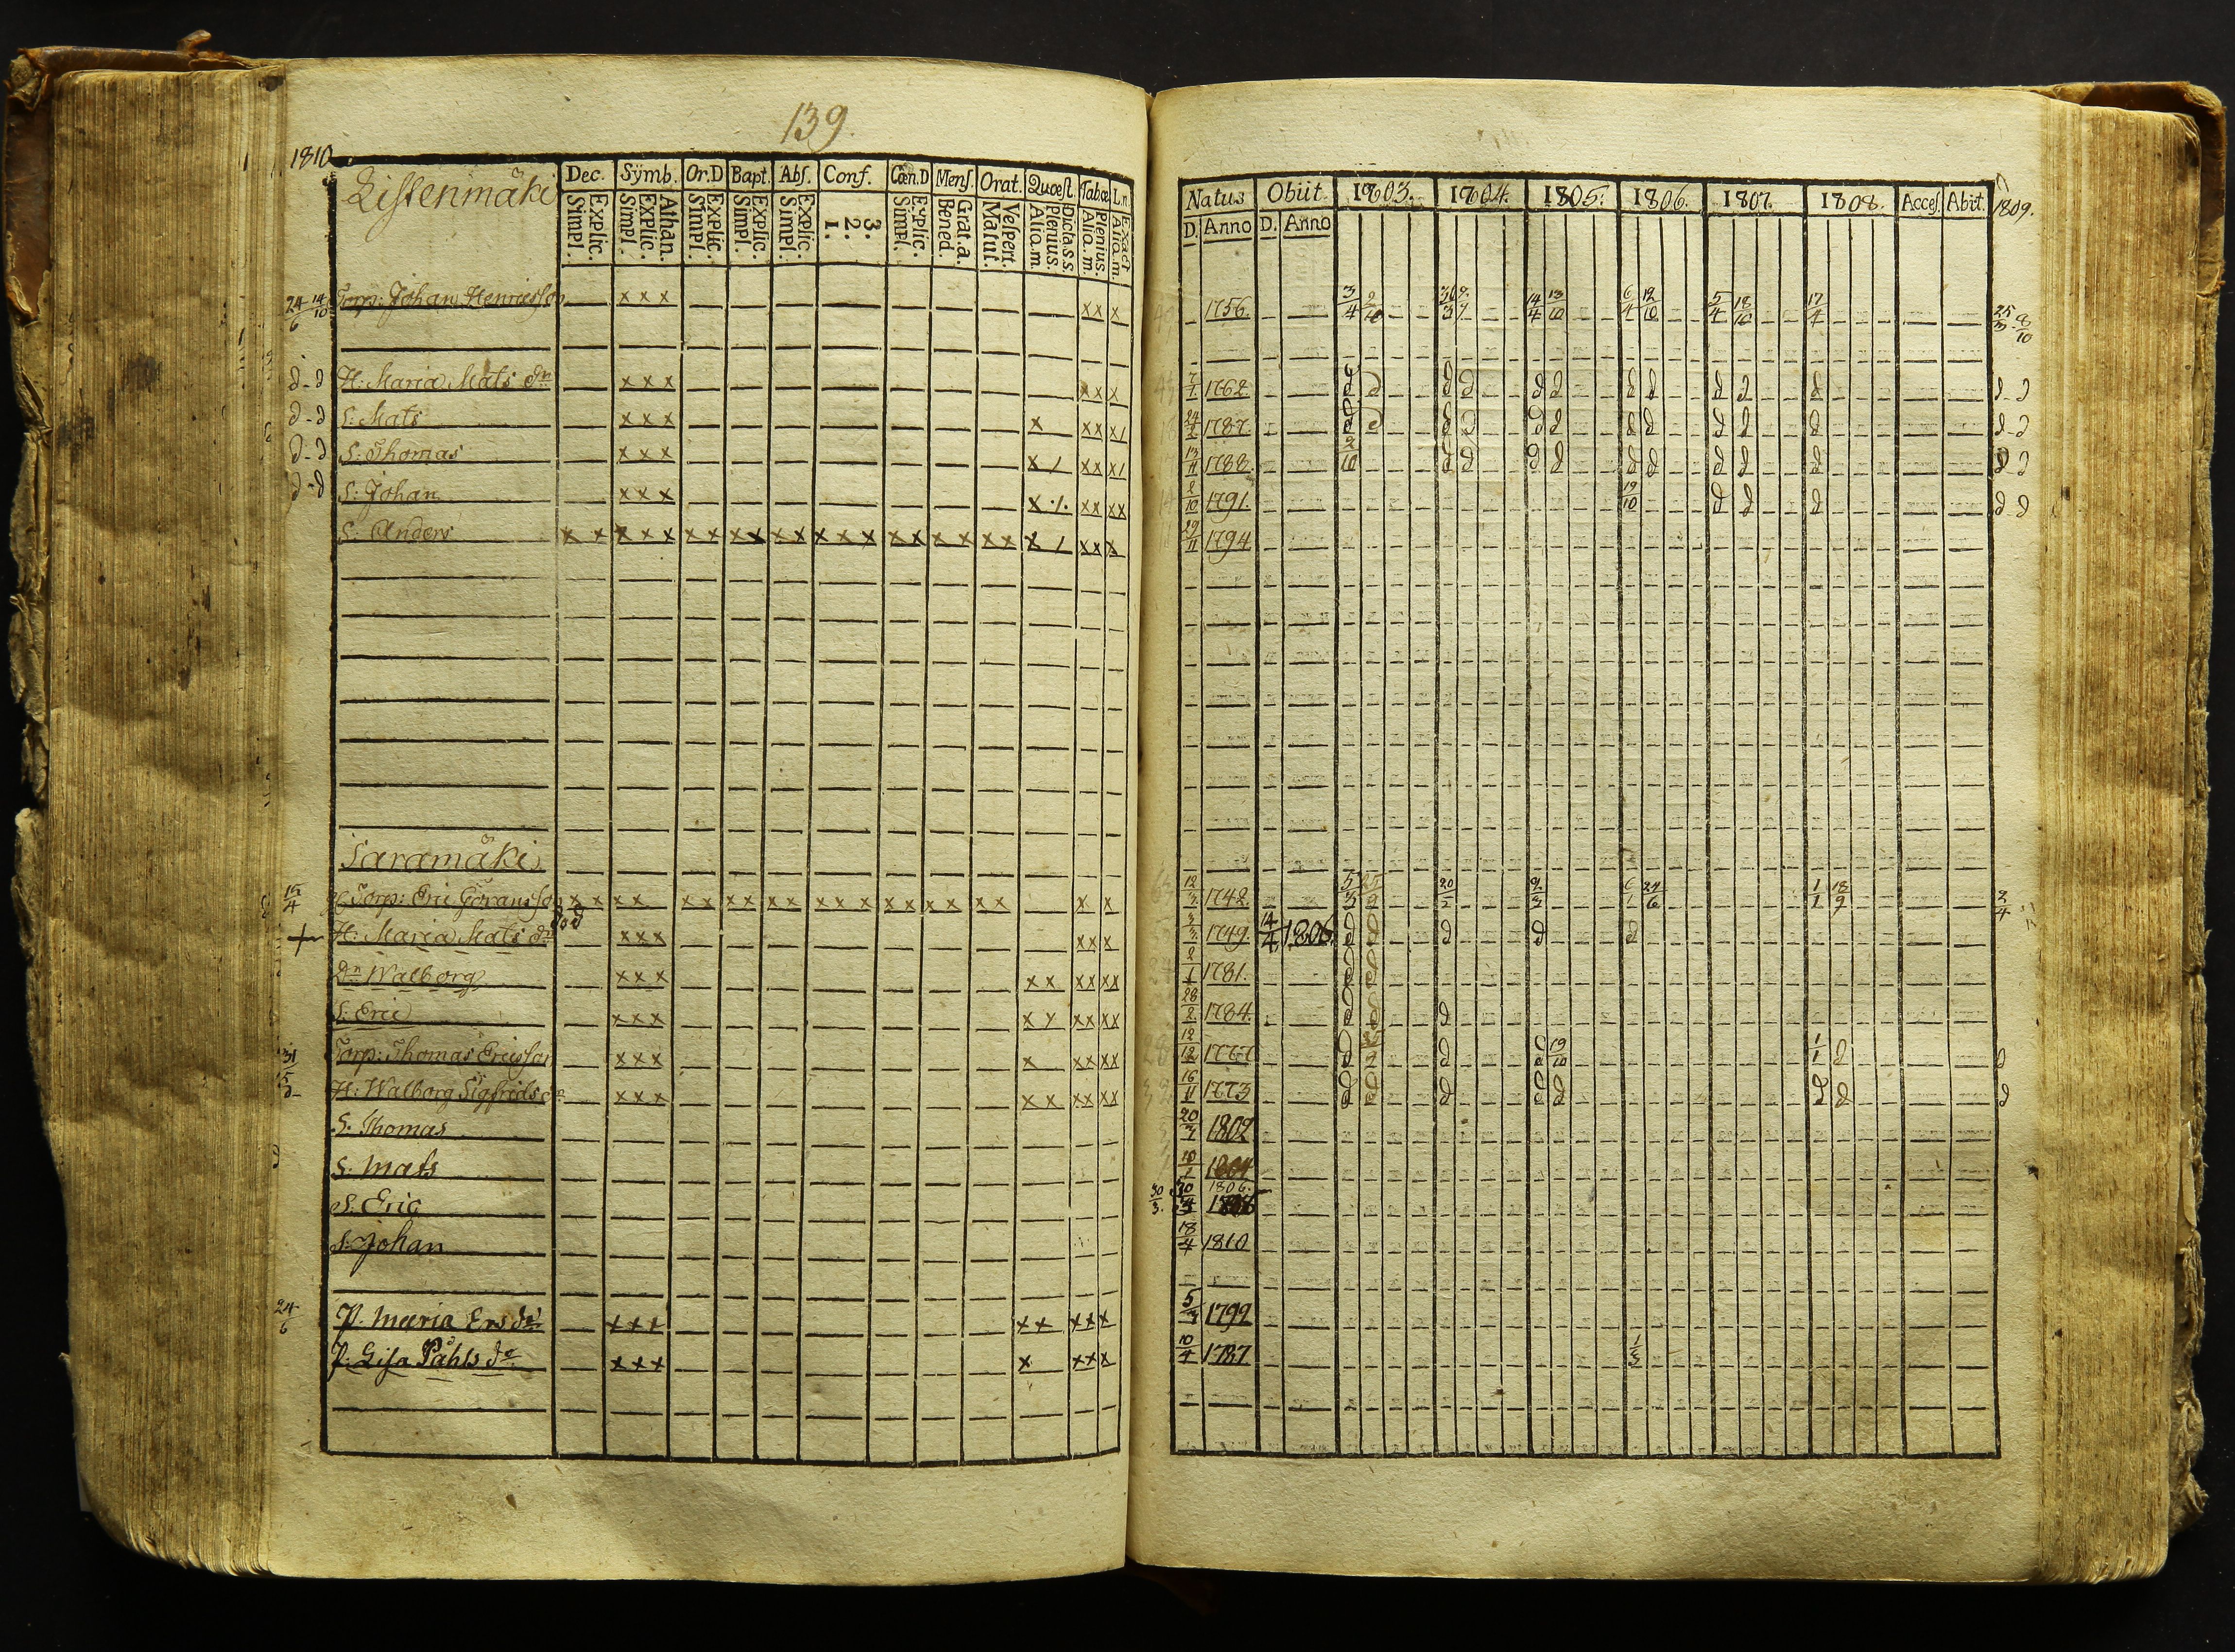 139.
1810
Listenmäki
Dec. Symb. Or.D Bapt. Abs. Conf. Cœn.D Mens. Orat. Quæst. Tabæ. L.n.
Explic. Simpl. Athan. Explic. Simpl. Explic. Simpl. Explic. Simpl. Explic. Simpl. 3. 2. 1. Explic. Simpl. Grat.a. Bened. Vespert. Matut. Dicta.s.s. Plenius. Alio.m. Plenius. Alio.m. Exact Alio.m.
24/6 14/10 Torp: Johan Henricsson x x x x x x
d - d H: Maria Mats dr x x x x x x
d - d S: Mats x x x x x x x /
d - d S: Thomas x x x x / x x x /
d - d S: Johan x x x x ./. x x x x
S: Anders x x x x x x x x x x x x x x x x x x x x x / x x x
Saramäki
15/4 Torp: Eric Göransson x x x x x x x x x x x x x x x x x x x x x
H: Maria Mats dr x x x x x x
Dr Walborg x x x x x x x x x
S: Eric x x x x x x x x x
31/5 Torp: Thomas Ericsson x x x x x x x x
d - H: Walborg Sigfrids dr x x x x x x x x x
S. Thomas
S. Mats
S: Eric
S: Johan
24/6 P. Maria Ers dr x x x x x x x x
P. Lisa Påhls dr x x x x x x x
Natus Obiit. 1803. 1804. 1805. 1806. 1807. 1808. Acces. Abit. 1809.
D. Anno D. Anno
1756. 3/4 2/10 14/4 13/10 6/4 12/10 5/4 18/10 17/4 25/3 - 8/10
1762 d d d d d d d d d d d d - d
24/2 1787 d d d d d d d d d d d d - d
13/11 1788 2/10 d d d d d d d d d d - d
8/10 1791. 19/10 d d d d - d
29/11 1794
1742. 5/3 20/2 2/3 1/1 18/9 2/4
1749. 14/4 1806. d d d d d
1781. d d
28/2 1784. d d d
12/12 1767 d d 19/10 1/1 d d
16/11 1773 d d d d d d d d
20/3 1802
10/1 1804
30/3. 1806.
18/4 1810
5/3 1792
10/4 1787 1/3